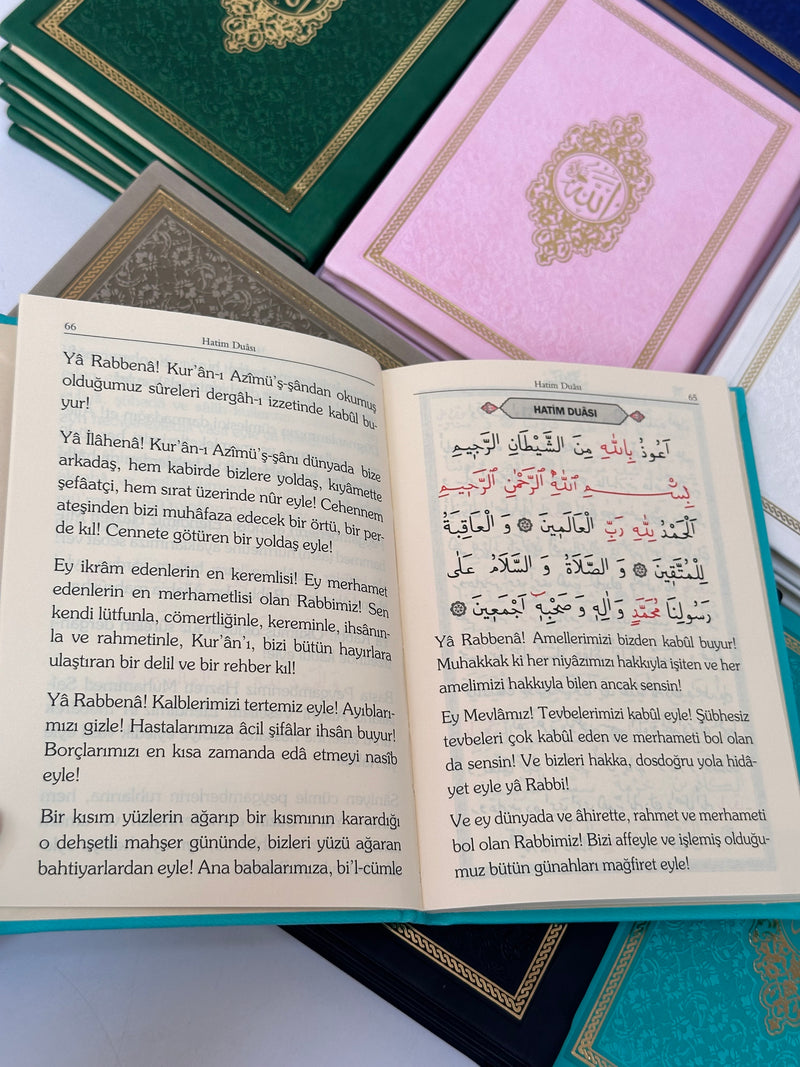 الله
Hatim Duâsı
65
HATİM DUÂSI
اَعُوذُ بِاللّٰهِ مِنَ الشَّيْطَانِ الرَّجٖيمِ
بِسْمِ اللّٰهِ الرَّحْمٰنِ الرَّحٖيمِ
اَلْحَمْدُ لِلّٰهِ رَبِّ الْعَالَمٖينَ ۞ وَ الْعَاقِبَةُ
لِلْمُتَّقٖينَ ۞ وَ الصَّلَاةُ وَ السَّلَامُ عَلٰى
رَسُولِنَا مُحَمَّدٍ وَ اٰلِهٖ وَ صَحْبِهٖٓ اَجْمَعٖينَ ۞
Yâ Rabbenâ! Amellerimizi bizden kabûl buyur!
Muhakkak ki her niyâzımızı hakkıyla işiten ve her
amelimizi hakkıyla bilen ancak sensin!
Ey Mevlâmız! Tevbelerimizi kabûl eyle! Şübhesiz
tevbeleri çok kabûl eden ve merhameti bol olan
da sensin! Ve bizleri hakka, dosdoğru yola hidâ-
yet eyle yâ Rabbi!
Ve ey dünyada ve âhirette, rahmet ve merhameti
bol olan Rabbimiz! Bizi affeyle ve işlemiş olduğu-
muz bütün günahları mağfiret eyle!
66
Hatim Duâsı
Yâ Rabbenâ! Kur'ân-ı Azîmü'ş-şândan okumuş
olduğumuz sûreleri dergâh-ı izzetinde kabûl bu-
yur!
Yâ İlâhenâ! Kur'ân-ı Azîmü'ş-şânı dünyada bize
arkadaş, hem kabirde bizlere yoldaş, kıyâmette
şefâatçi, hem sırat üzerinde nûr eyle! Cehennem
ateşinden bizi muhâfaza edecek bir örtü, bir per-
de kıl! Cennete götüren bir yoldaş eyle!
Ey ikrâm edenlerin en keremlisi! Ey merhamet
edenlerin en merhametlisi olan Rabbimiz! Sen
kendi lütfunla, cömertliğinle, kereminle, ihsânın-
la ve rahmetinle, Kur'ân'ı, bizi bütün hayırlara
ulaştıran bir delil ve bir rehber kıl!
Yâ Rabbenâ! Kalblerimizi tertemiz eyle! Ayıbları-
mızı gizle! Hastalarımıza âcil şifâlar ihsân buyur!
Borçlarımızı en kısa zamanda edâ etmeyi nasîb
eyle!
Bir kısım yüzlerin ağarıp bir kısmının karardığı
o dehşetli mahşer gününde, bizleri yüzü ağaran
bahtiyarlardan eyle! Ana babalarımıza, bi'l-cümle